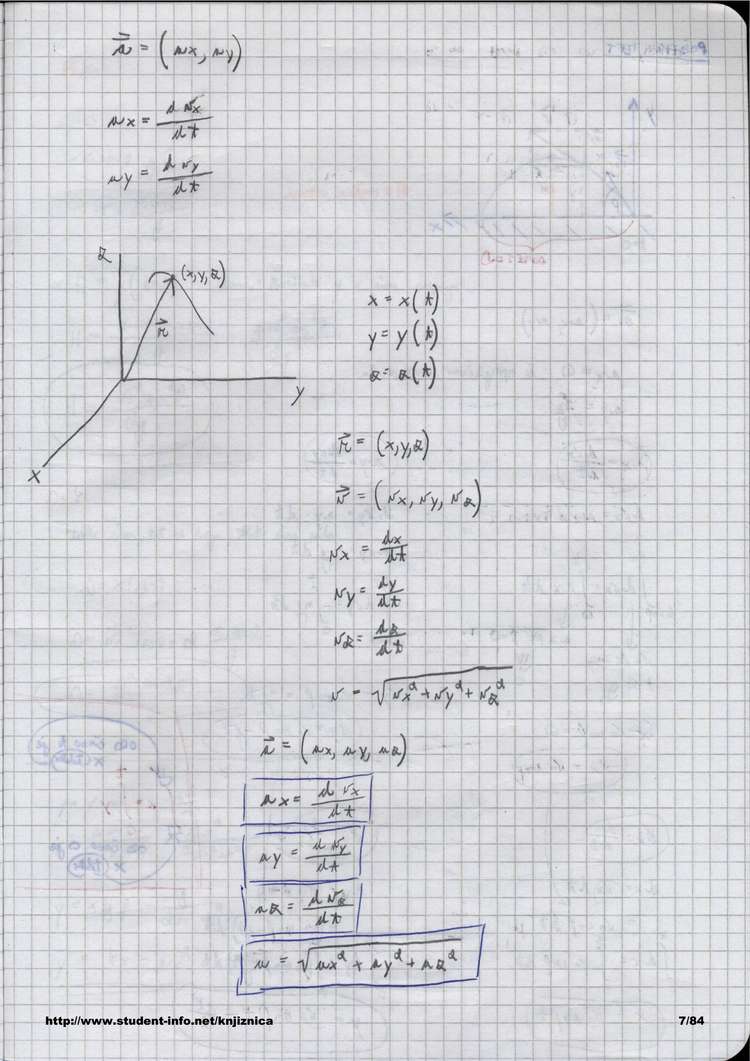 a⃗ = (ax, ay)
ax = dvx/dt
ay = dvy/dt
z
(x,y,z)
r⃗
y
x
x = x(t)
y = y(t)
z = z(t)
r⃗ = (x,y,z)
v⃗ = (vx, vy, vz)
vx = dx/dt
vy = dy/dt
vz = dz/dt
v = √vx² + vy² + vz²
a⃗ = (ax, ay, az)
ax = dvx/dt
ay = dvy/dt
az = dvz/dt
a = √ax² + ay² + az²
http://www.student-info.net/knjiznica 7/84